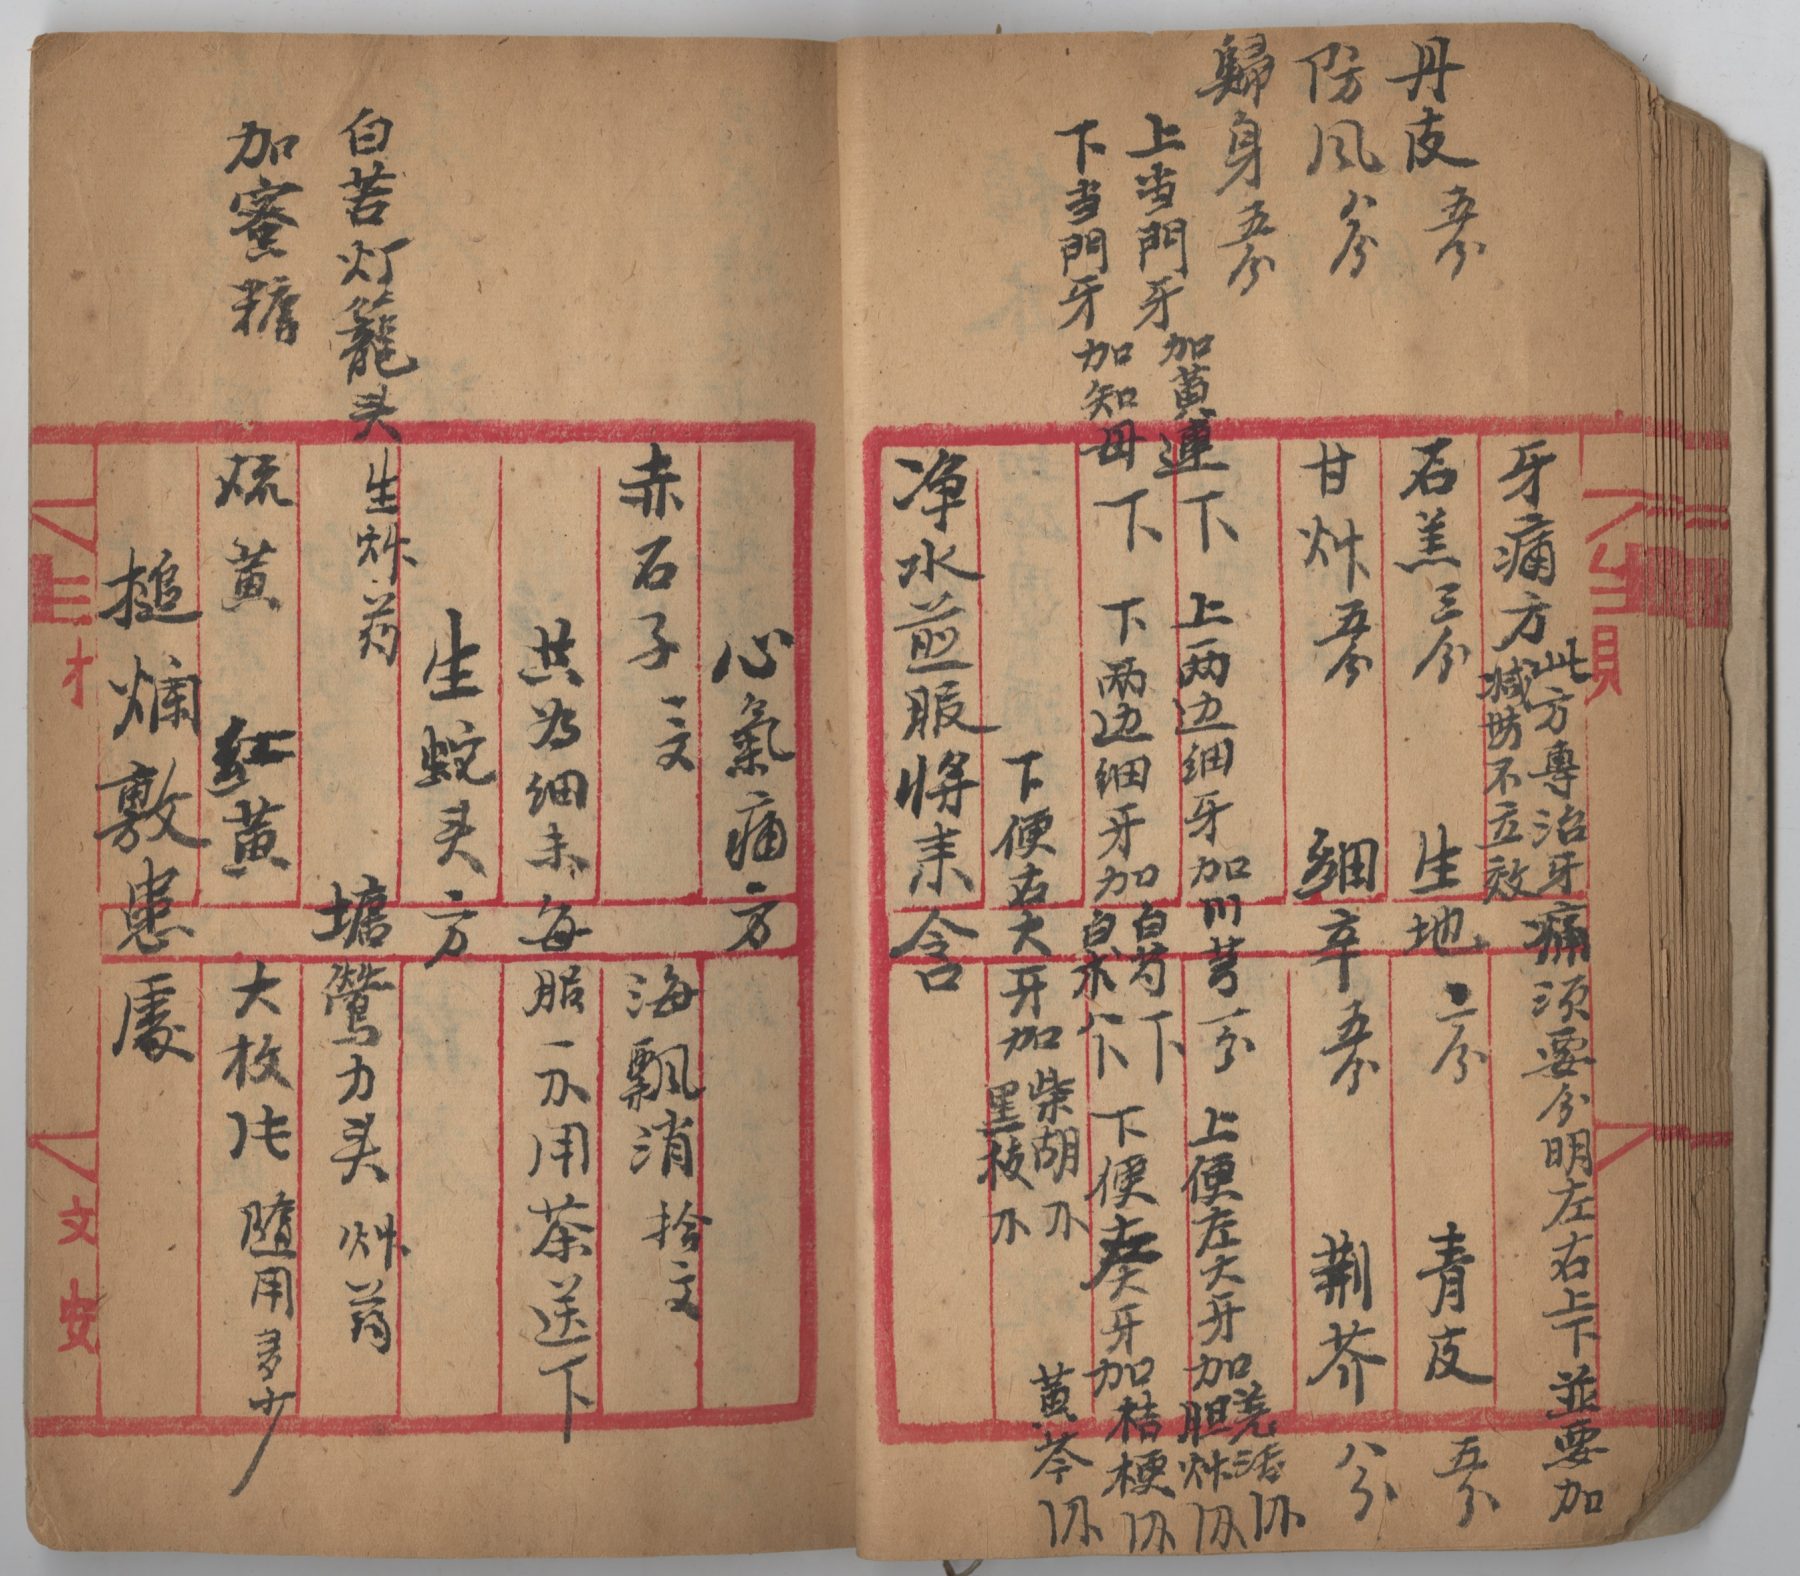 牙痛方 此方專治牙痛須要分明左右上下並要加
減妨不立效
丹皮 五分
石羔 三分 生地 二分 青皮 五分
防風 八分
甘艸 五分 細辛 五分 荆芥 八分
歸身 五分
上当門牙加黄連 下 上两边细牙加川芎 一分 上便左大牙加羌活 胆艸
下当門牙加知母 下 下两边细牙加白芍 白术 下 下便左大牙加桔梗 黄芩
下便右大牙加柴胡 黑枝
净水煎服将来含
心氣痛方
赤石子 一文 海飄消 拾文
共为细末每服一分用茶送下
生蚊头方
白苦灯籠头 生艸药 墉鶯力头 艸药
加蜜糖
硫黄 红黄 大枚片 隨用多少
搥爛敷患處
文安